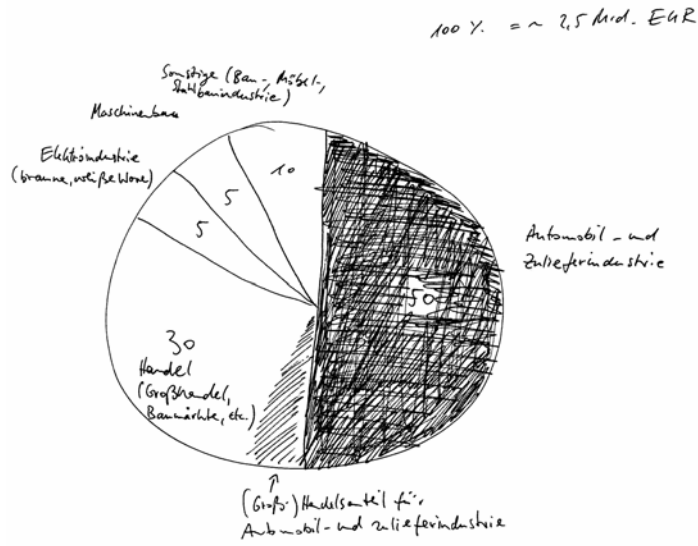 100 % = ~ 2,5 Mrd. EUR
Sonstige (Bau-, Möbel-,
Stahlbauindustrie)
Maschinenbau
Elektroindustrie
(braune, weiße Ware)
10
5
5
50
Automobil- und
Zulieferindustrie
30
Handel
(Großhandel,
Baumärkte, etc.)
(Groß-) Handelsanteil für
Automobil- und Zulieferindustrie